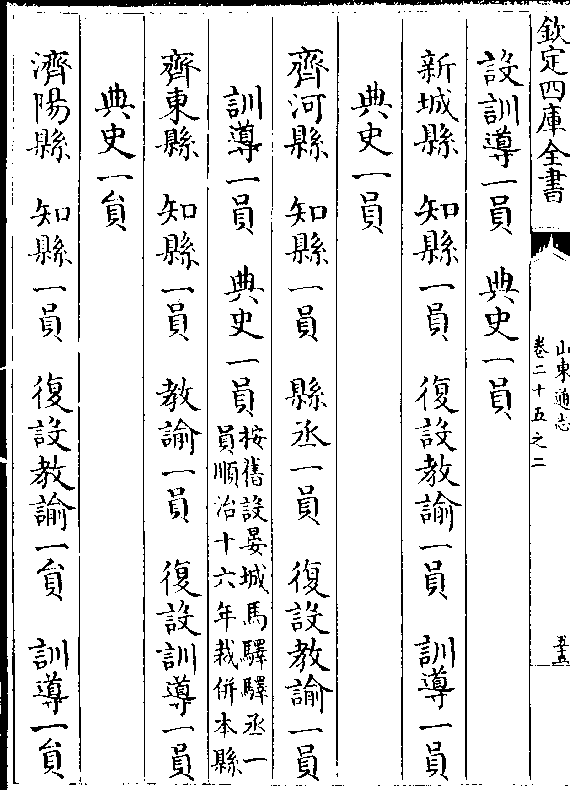 欽定四庫全書
山東通志
卷二十五之二
五五
設訓導一員　典史一員
新城縣　知縣一員　復設教諭一員　訓導一員
典史一員
齊河縣　知縣一員　縣丞一員　復設教諭一員
訓導一員　典史一員按舊設晏城馬驛驛丞一
員順治十六年裁併本縣
齊東縣　知縣一員　教諭一員　復設訓導一員
典史一貟
濟陽縣　知縣一員　復設教諭一貟　訓導一貟